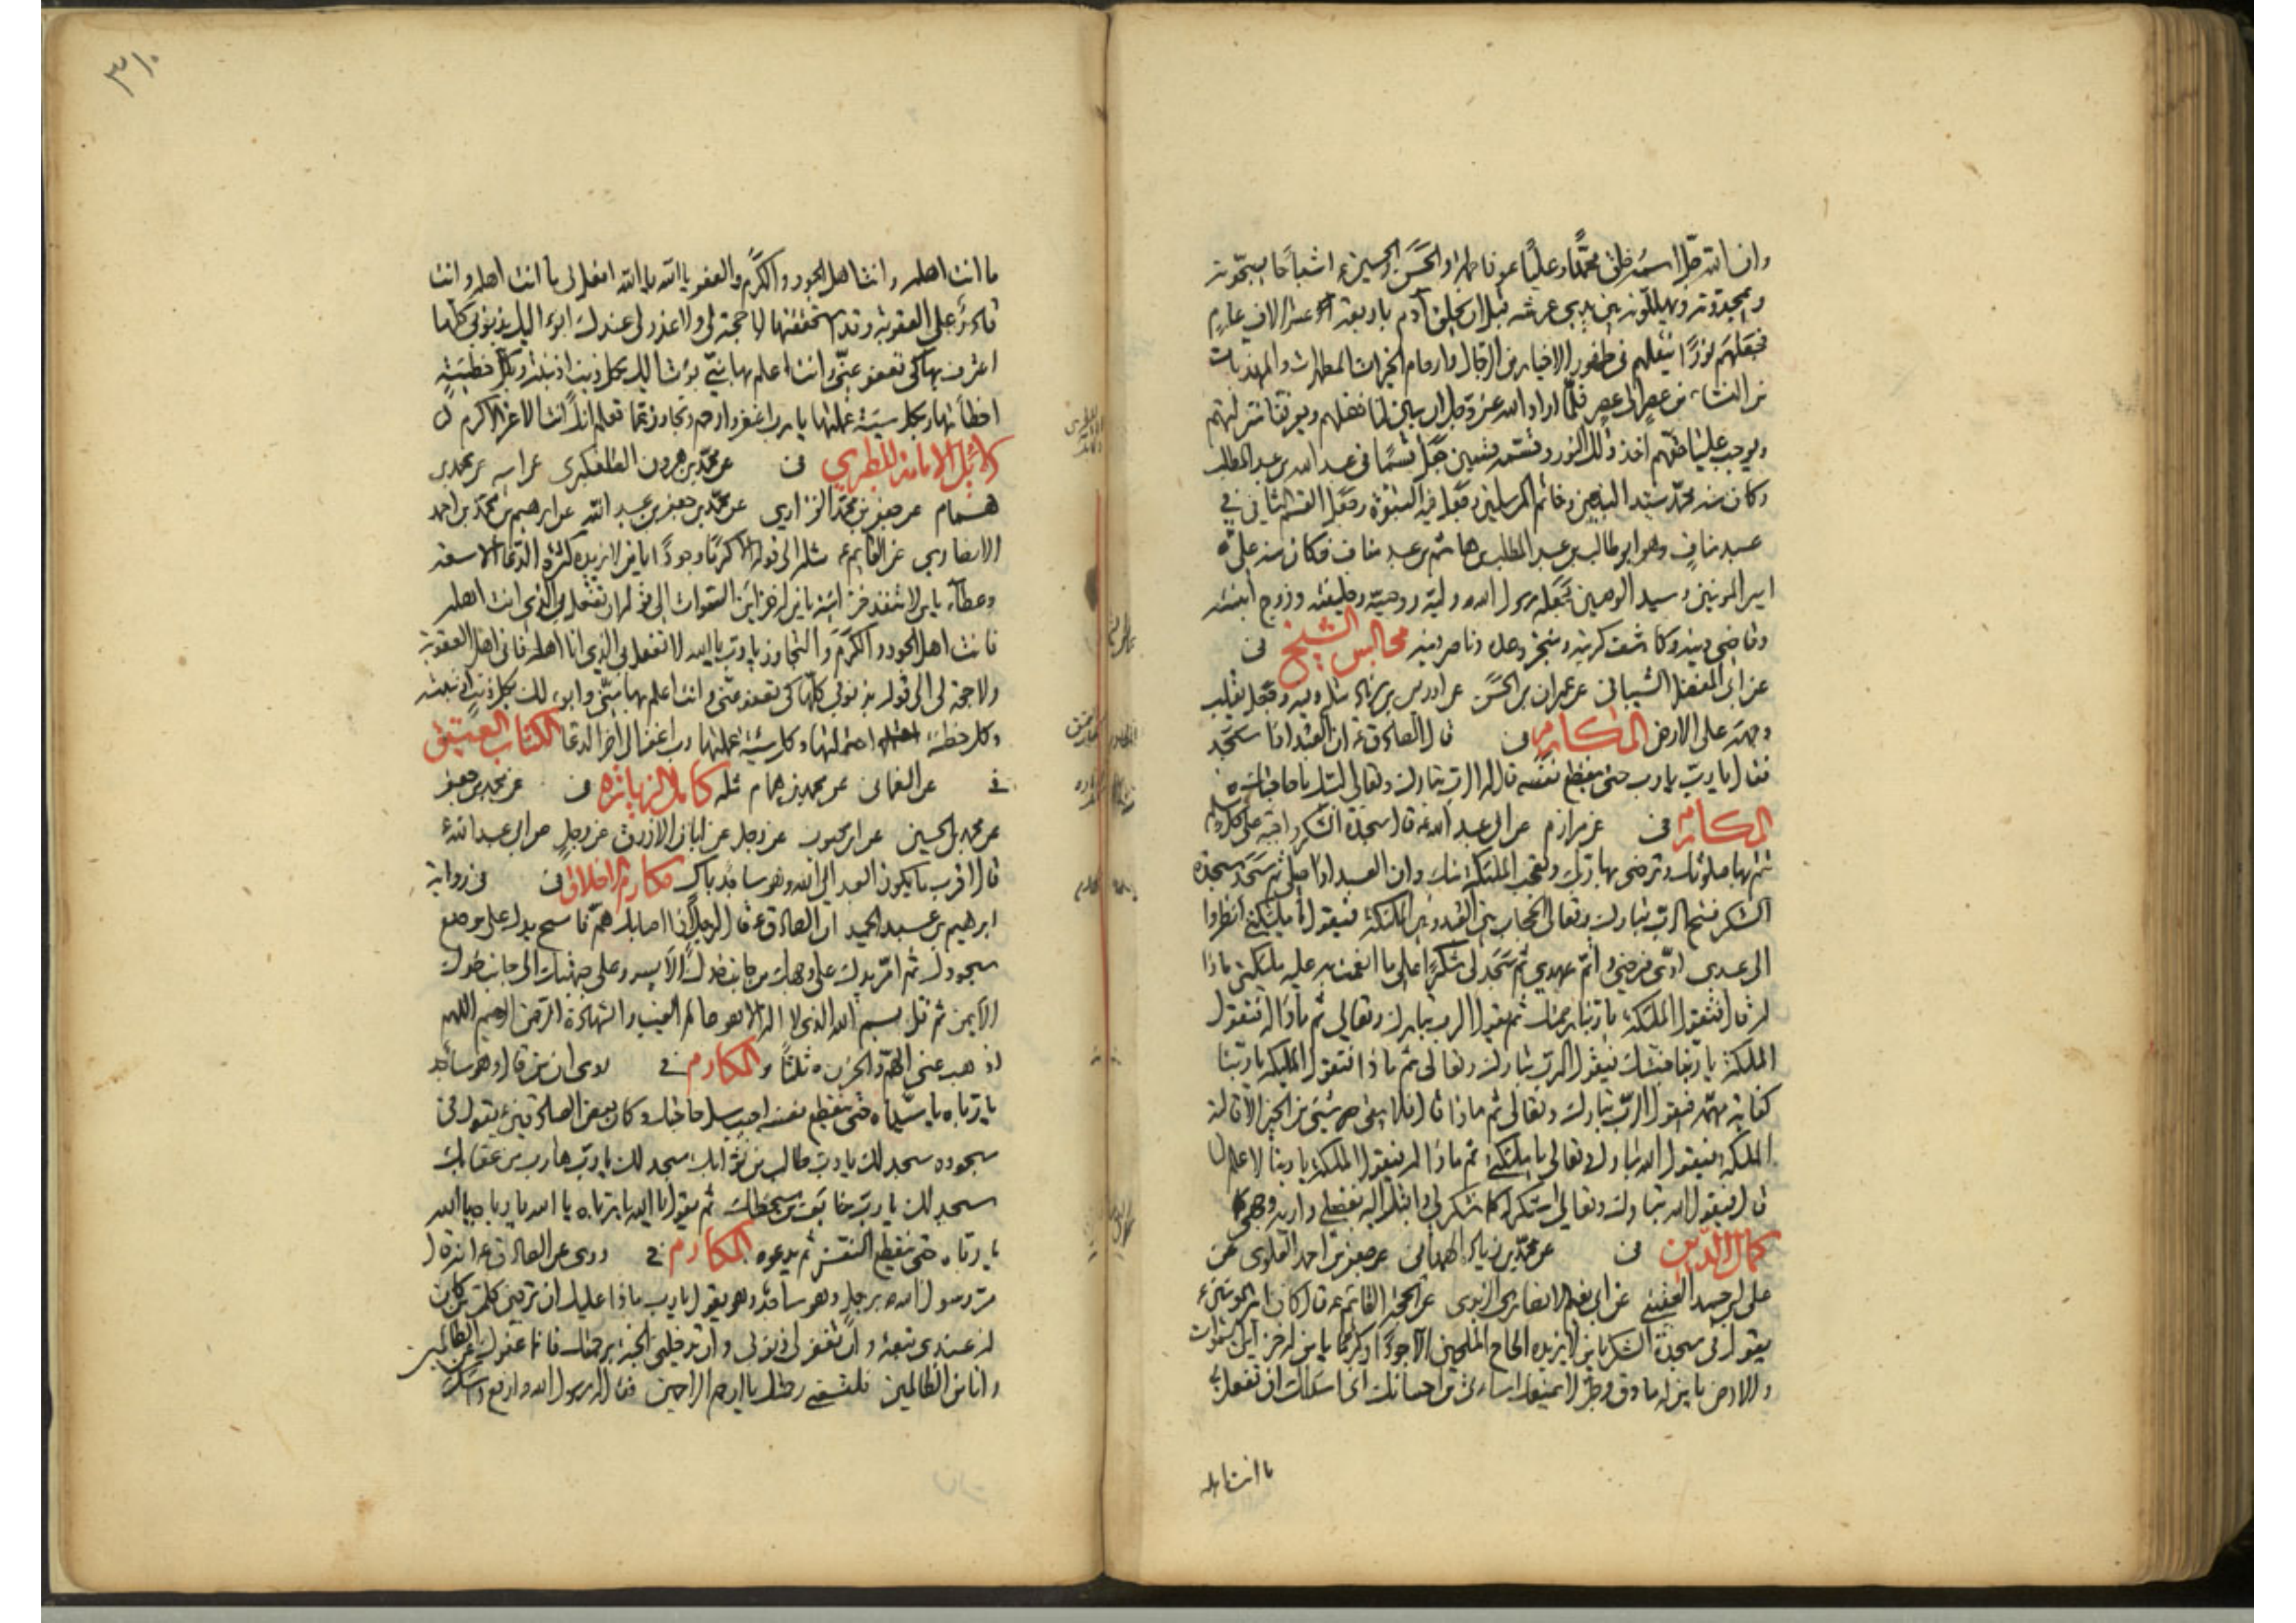 وان الله جل اسمه خلق محمدا وعليا عم وفاطمة والحسن والحسين ع اشباحا يسبحونه
ويمجدونه ويهللونه بين يدي عرشه قبل ان يخلق آدم باربعة عشر الاف عام
فجعلهم نورا ينقلهم في ظهور الاخيار من الرجال وارحام الخيرات المطهرات والمهذبات
من النساء من عصر الى عصر فلما اراد الله عز وجل ان يبين لنا فضلهم ويعرفنا منزلتهم
ويوجب علينا حقهم اخذ ذلك النور وقسمه قسمين جعل قسما في عبد الله بن عبد المطلب
وكان منه محمد سيد النبيين وخاتم المرسلين وجعل فيه النبوة وجعل القسم الثاني في
عبد مناف وهو ابو طالب بن عبد المطلب بن هاشم بن عبد مناف فكان منه علي
امير المؤمنين وسيد الوصيين جعله رسول الله وليه ووصيه وخليفته وزوج ابنته
وقاضي دينه وكاشف كربته ومنجز وعده وناصر دينه مجالس الشيخ في
عن ابي المفضل الشيباني عن عمران بن الحسن عن ادريس بن زياد مثله وفيه وجعل يقلب
وجهه على الارض المكارم في قال الصادق ع ان العبد اذا سجد
فقال يا رب يا رب حتى ينقطع نفسه قال له الرب تبارك وتعالى لبيك ما حاجتك
المكارم في عن مرازم عن ابي عبد الله ع قال سجدة الشكر واجبة على كل مسلم
تتم بها صلوتك وترضي بها ربك وتعجب الملئكة منك وان العبد اذا صلى ثم سجد سجدة
الشكر فتح الرب تبارك وتعالى الحجاب بين العبد وبين الملئكة فيقول يا ملئكتي انظروا
الى عبدي ادى فرضي واتم عهدي ثم سجد لي شكرا على ما انعمت به عليه ملئكتي ماذا
له قال فتقول الملئكة يا ربنا رحمتك ثم يقول الرب تبارك وتعالى ثم ماذا له فتقول
الملئكة يا ربنا جنتك فيقول الرب تبارك وتعالى ثم ماذا فتقول الملئكة يا ربنا
كفاية مهمه فيقول الرب تبارك وتعالى ثم ماذا قال فلا يبقى شيء من الخير الا قالته
الملئكة فيقول الله تبارك وتعالى يا ملئكتي ثم ماذا له فيقول الملئكة يا ربنا لا علم لنا
قال فيقول الله تبارك وتعالى اشكر له كما شكر لي واقبل اليه بفضلي واريه وجهي
كمال الدين في عن محمد بن زياد الهمداني عن جعفر بن احمد العلوي عن
علي بن احمد العقيقي عن ابي نعيم الانصاري الزيدي عن الحجة القائم ع قال كان امير المؤمنين ع
يقول في سجدة الشكر يا من لا يزيده الحاح الملحين الا جودا وكرما يا من له خزائن السموات
والارض يا من له ما دق وجل لا يمنعك اساءتي من احسانك انى اسئلك ان تفعل بي
ما انت اهله
٣١٠
ما انت اهله وانت اهل الجود والكرم والعفو يا الله يا الله افعل بي ما انت اهله وانت
قادر على العقوبة وقد استحققتها لا حجة لي ولا عذر لي عندك ابوء اليك بذنوبي كلها
اعترف بها كي تعفو عني وانت اعلم بها مني بؤت اليك بكل ذنب اذنبته وبكل خطيئة
اخطأتها وبكل سيئة عملتها يا رب اغفر وارحم وتجاوز عما تعلم انك انت الاعز الاكرم
دلائل الامامة للطبري في عن محمد بن هرون التلعكبري عن ابيه عن محمد بن
همام عن جعفر بن محمد الفزاري عن محمد بن جعفر بن عبد الله عن ابرهيم بن محمد بن احمد
الانصاري عن القائم ع مثله الى قوله الا كرما وجودا يا من لا يزيده كثرة الدعاء الا سعة
وعطاء يا من لا تنفد خزائنه يا من له خزائن السموات الى قوله ان تفعل بي الذي انت اهله
فانت اهل الجود والكرم والتجاوز يا رب يا الله لا تفعل بي الذي انا اهله فاني اهل العقوبة
ولا حجة لي الى قوله بذنوبي كلها كي تعفو عني وانت اعلم بها مني وابوء لك بكل ذنب اذنبته
وكل خطيئة احتملتها وكل سيئة عملتها رب اغفر الى اخر الدعاء الكتاب العتيق
في عن النعماني عن محمد بن همام مثله كامل الزيارة في عن محمد بن جعفر
عن محمد بن الحسين عن ابن محبوب عن رجل عن ابان الازرق عن رجل عن ابي عبد الله ع
قال اقرب ما يكون العبد الى الله وهو ساجد باك مكارم الاخلاق في في رواية
ابرهيم بن عبد الحميد ان الصادق ع قال لرجل اذا اصابك هم فامسح يدك على موضع
سجودك ثم امر يدك على وجهك من جانب خدك الايسر وعلى جبهتك الى جانب خدك
الايمن ثم قل بسم الله الذي لا اله الا هو عالم الغيب والشهادة الرحمن الرحيم اللهم
اذهب عني الهم والحزن ثلثا والمكارم في روي ان من قال وهو ساجد
يا رباه يا سيداه حتى ينقطع نفسه اجيب سل حاجتك وكان بعض الصادقين ع يقول في
سجوده سجد لك يا رب طالب من ثوابك سجد لك يا رب هارب من عقابك
سجد لك يا رب خائف من سخطك ثم يقول يا الله يا رباه يا الله يا رباه يا الله
يا رباه حتى ينقطع النفس ثم يدعو المكارم في وروي عن الصادق ع انه قال
مر رسول الله ص برجل وهو ساجد وهو يقول يا رب ماذا عليك ان ترضي كل من كان
له عندي تبعة وان تغفر لي ذنوبي وان تدخلني الجنة برحمتك فانما عفوك عن الظالمين
وانا من الظالمين فلتسعني رحمتك يا ارحم الراحمين فقال له رسول الله ارفع راسك